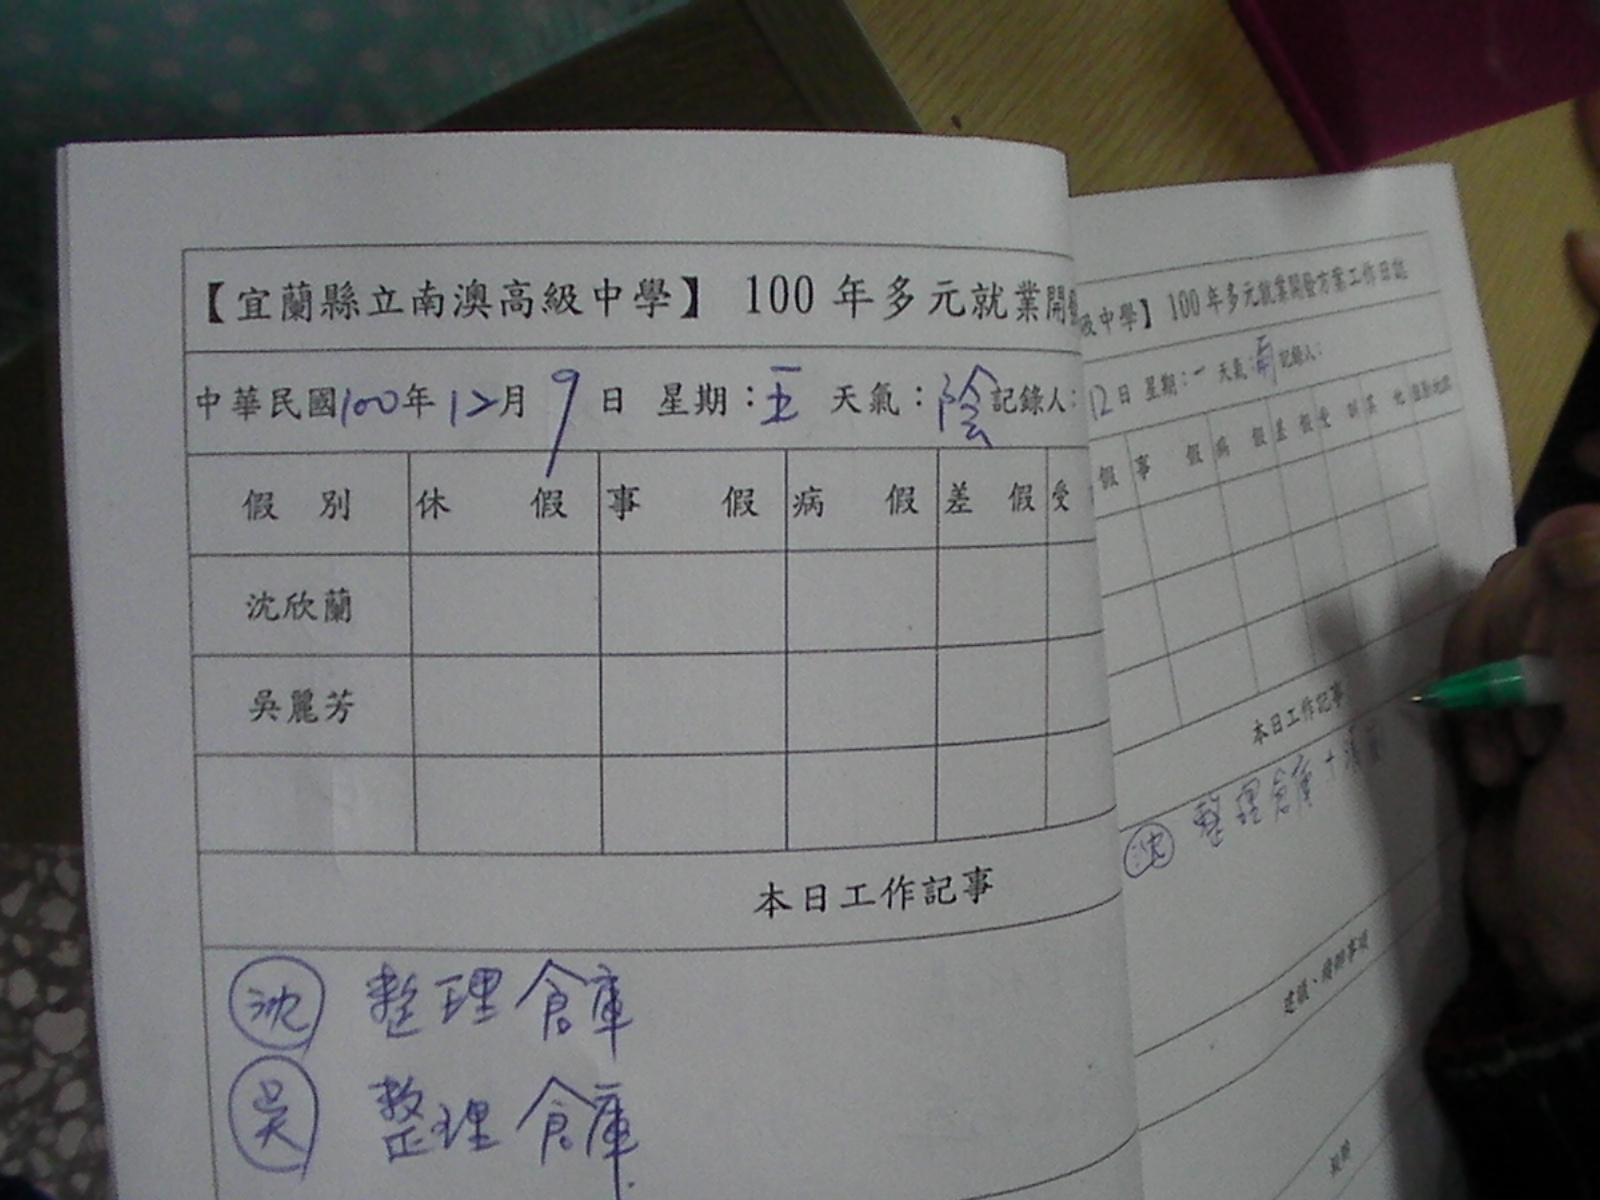 【宜蘭縣立南澳高級中學】 100 年多元就業開發
中華民國100年 12月 9 日 星期：五 天氣：陰 記錄人：
假 別 休 假 事 假 病 假 差 假 受
沈欣蘭
吳麗芳
本日工作記事
沈 整理倉庫
吳 整理倉庫
級中學】 100 年多元就業開發方案工作日誌
12日 星期：一 天氣：雨 記錄人：
假 事 假 病 假 差 假 受 訓 其 他
本日工作記事
沈 整理倉庫+